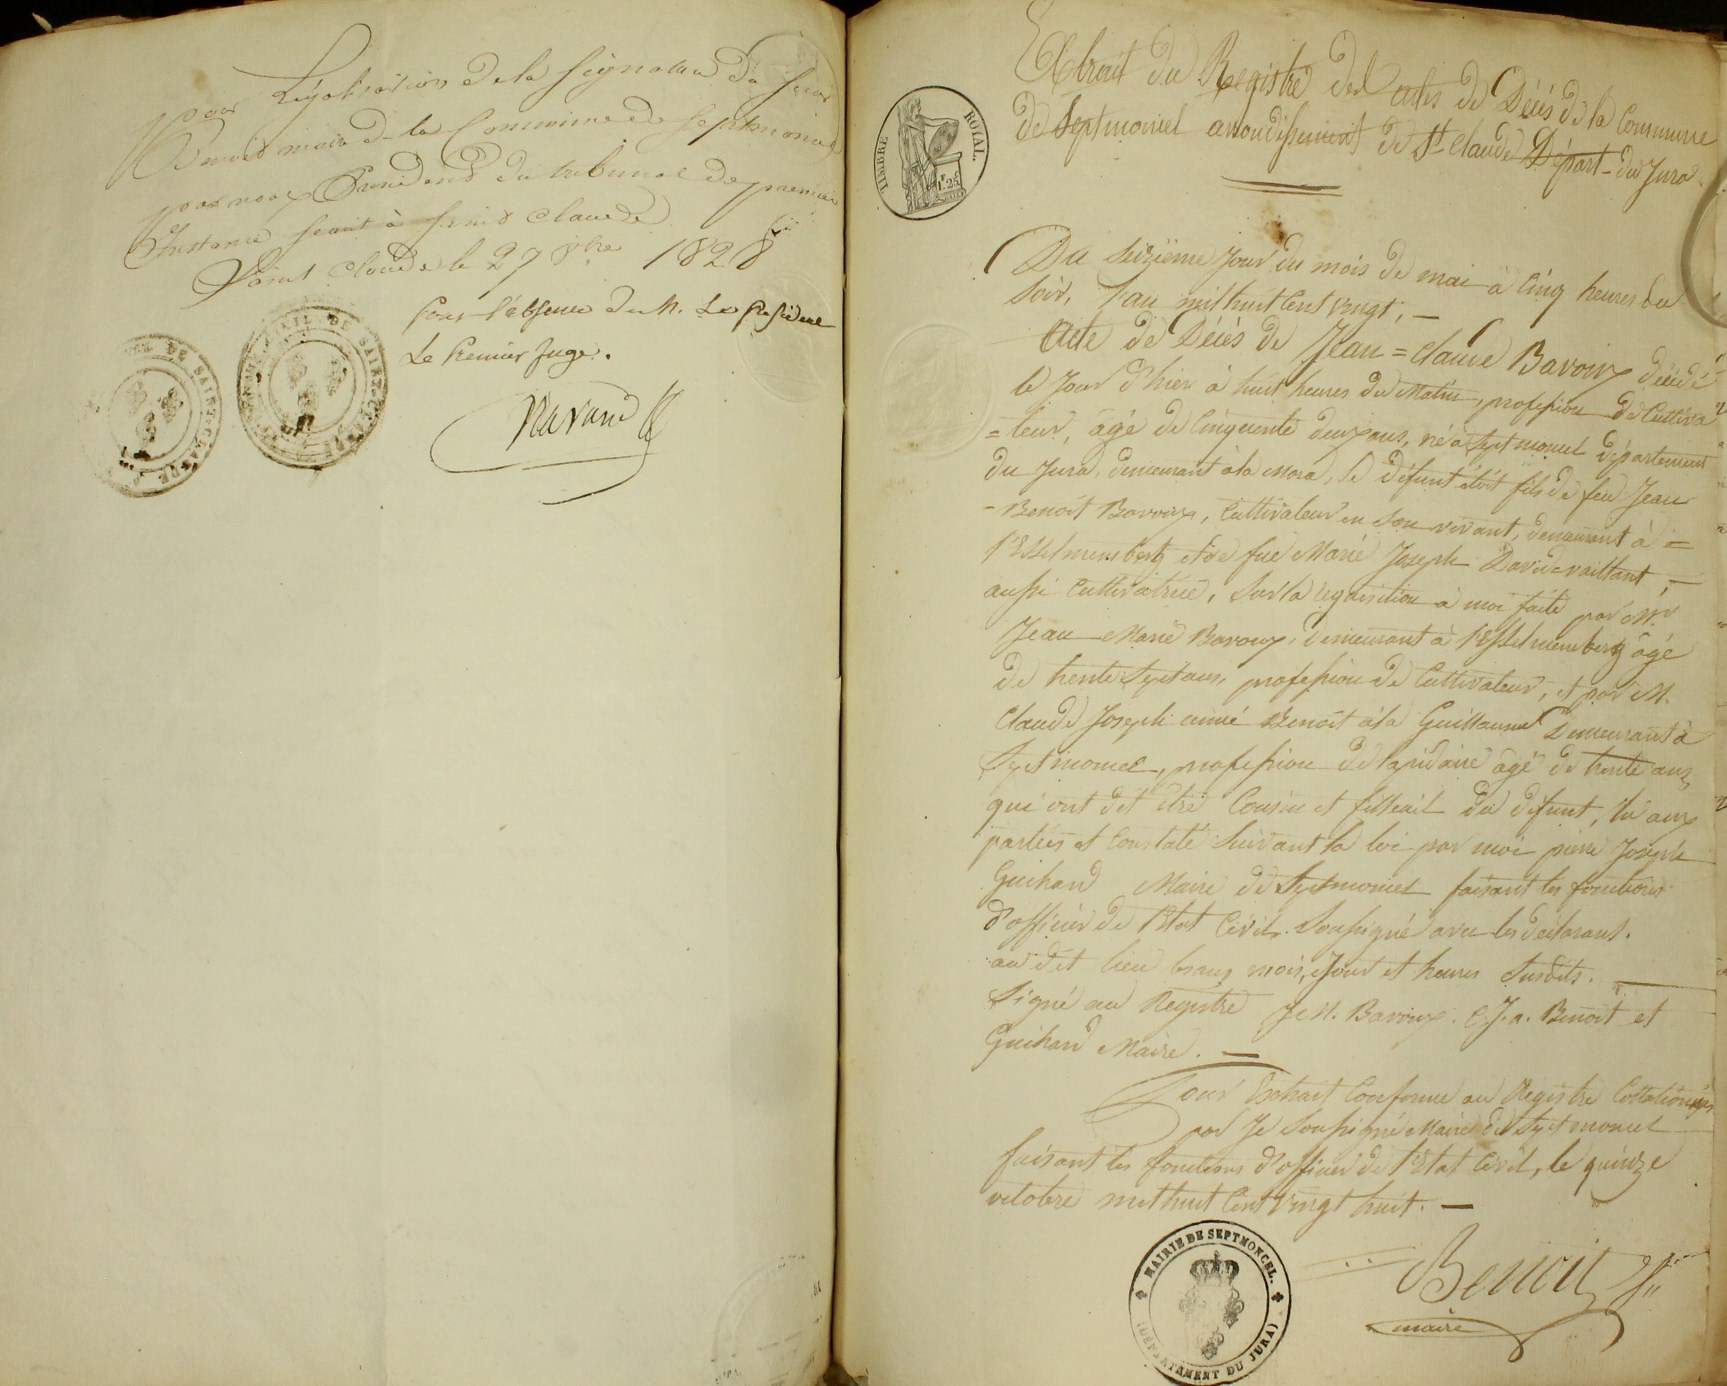 Pour Légalisation de la signature du sieur
Benoit maire de la Commune de Septmoncel
par nous President du tribunal de premiere
Instance séant à Saint Claude
Saint Claude le 27 8bre 1828
Pour l'absence de M. Le Président
Le Premier Juge.
TIMBRE ROYAL.
1.25
Extrait du Registre des actes de Décès de la Commune
de Septmoncel arrondissement de St Claude Départ. du Jura.
Du Seizième jour du mois de mai à Cinq heures du
Soir, l'an mil huit Cent vingt, —
Acte de Décès de Jean=claude Bavoux décédé
le jour d'hier à huit heures du Matin, profession de Cultiva
=teur, âgé de Cinquante deux ans, né à Septmoncel département
du Jura, demeurant à la Mura, le défunt étoit fils de feu Jean
-Benoit Bavoux, Cultivateur en son vivant, demeurant à =
et de fue Marie Joseph David=vaillant, —
aussi Cultivatrice, Sur la requisition à moi faite par Mr
Jean Marie Bavoux, demeurant à âgé
de trente Sept ans, profession de Cultivateur, et par M.
Claude Joseph aimé Benoit à la Guillaume Demeurant à
Septmoncel, profession de lapidaire âgé de trente ans,
qui ont dit être Cousin et du défunt, lu aux
parties et Constaté Suivant la loi par moi pierre Joseph
Guihard Maire de Septmoncel faisant les fonctions
d'officier de l'Etat Civil. Soussigné avec les déclarans.
au dit lieu les an, mois, Jour et heures Susdits. —
Signé au Registre J. M. Bavoux. C. J. a. Benoit et
Guihard Maire. —
Pour Extrait Conforme au Registre Collationné
par Je Soussigné Maire de Septmoncel
faisant les fonctions d'officier de l'Etat Civil, le quinze
octobre mil huit Cent vingt huit. —
Benoit
maire
MAIRIE DE SEPTMONCEL.
(DÉPARTEMENT DU JURA)